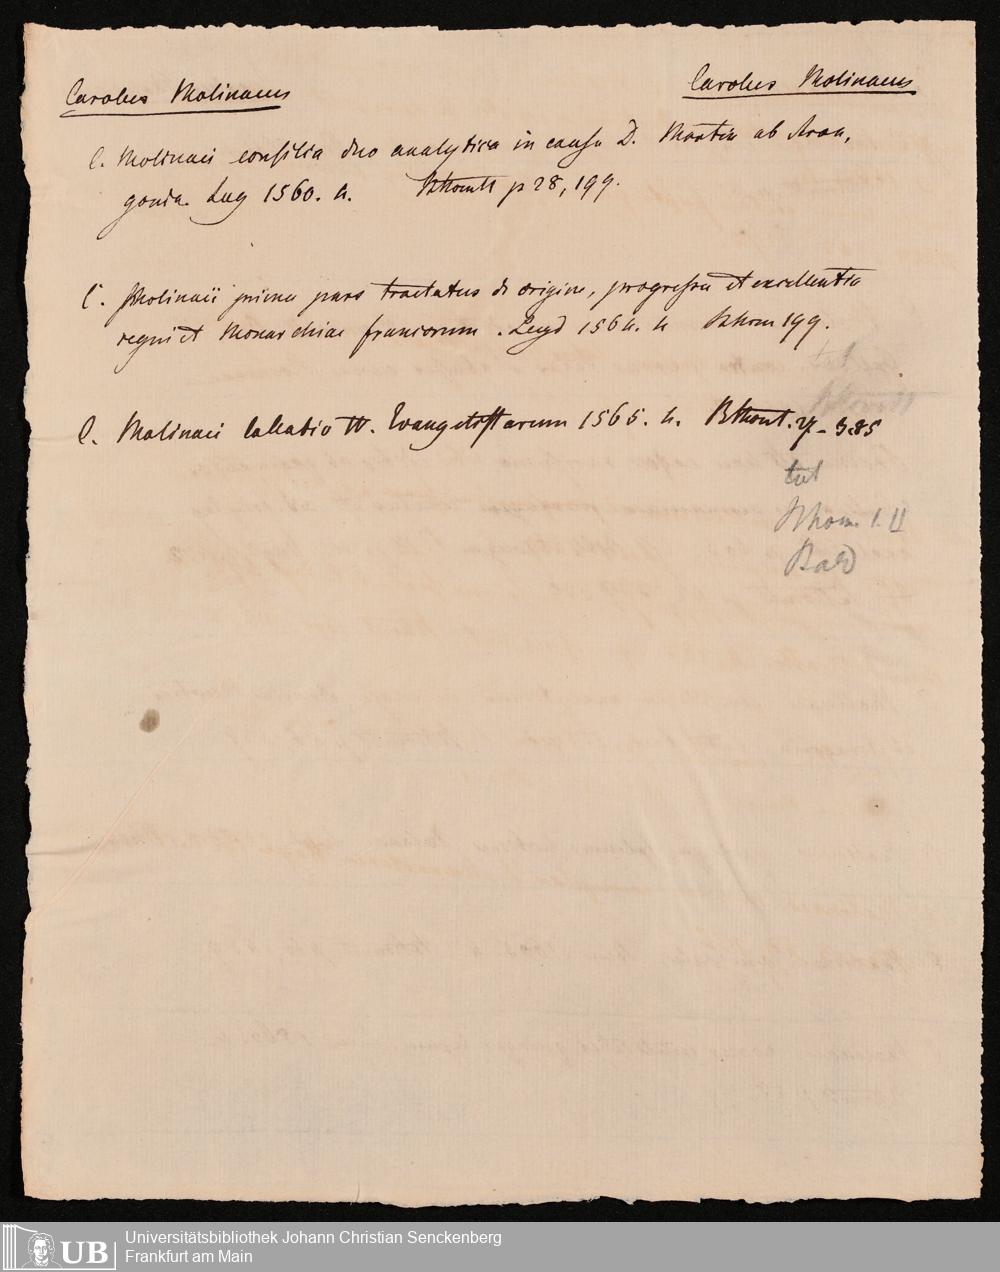 Carolus Molinaeus
Carolus Molinaeus
C. Molinaei consilia duo analytica in causa D. Martin ab Arra,
gonia. Lug 1560. 4. p 28, 199.
C. Molinaei prima pars tractatus de origine, progressu et excellentia
regni et Monarchiae francorum. Lugd 1564. 4 199.
C. Molinaei Collatio IV. Evangelistarum 1565. 4. 385
tut
I. II
UB
Universitätsbibliothek Johann Christian Senckenberg
Frankfurt am Main